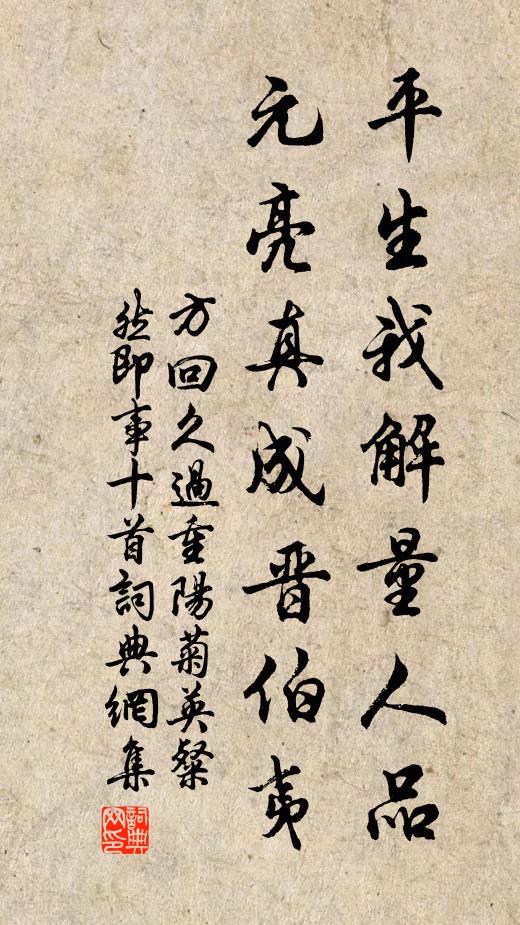 平生我解量人品
元亮真成晋伯夷
方回久過重陽菊英粲
然即事十首詞典網集
詞典网印